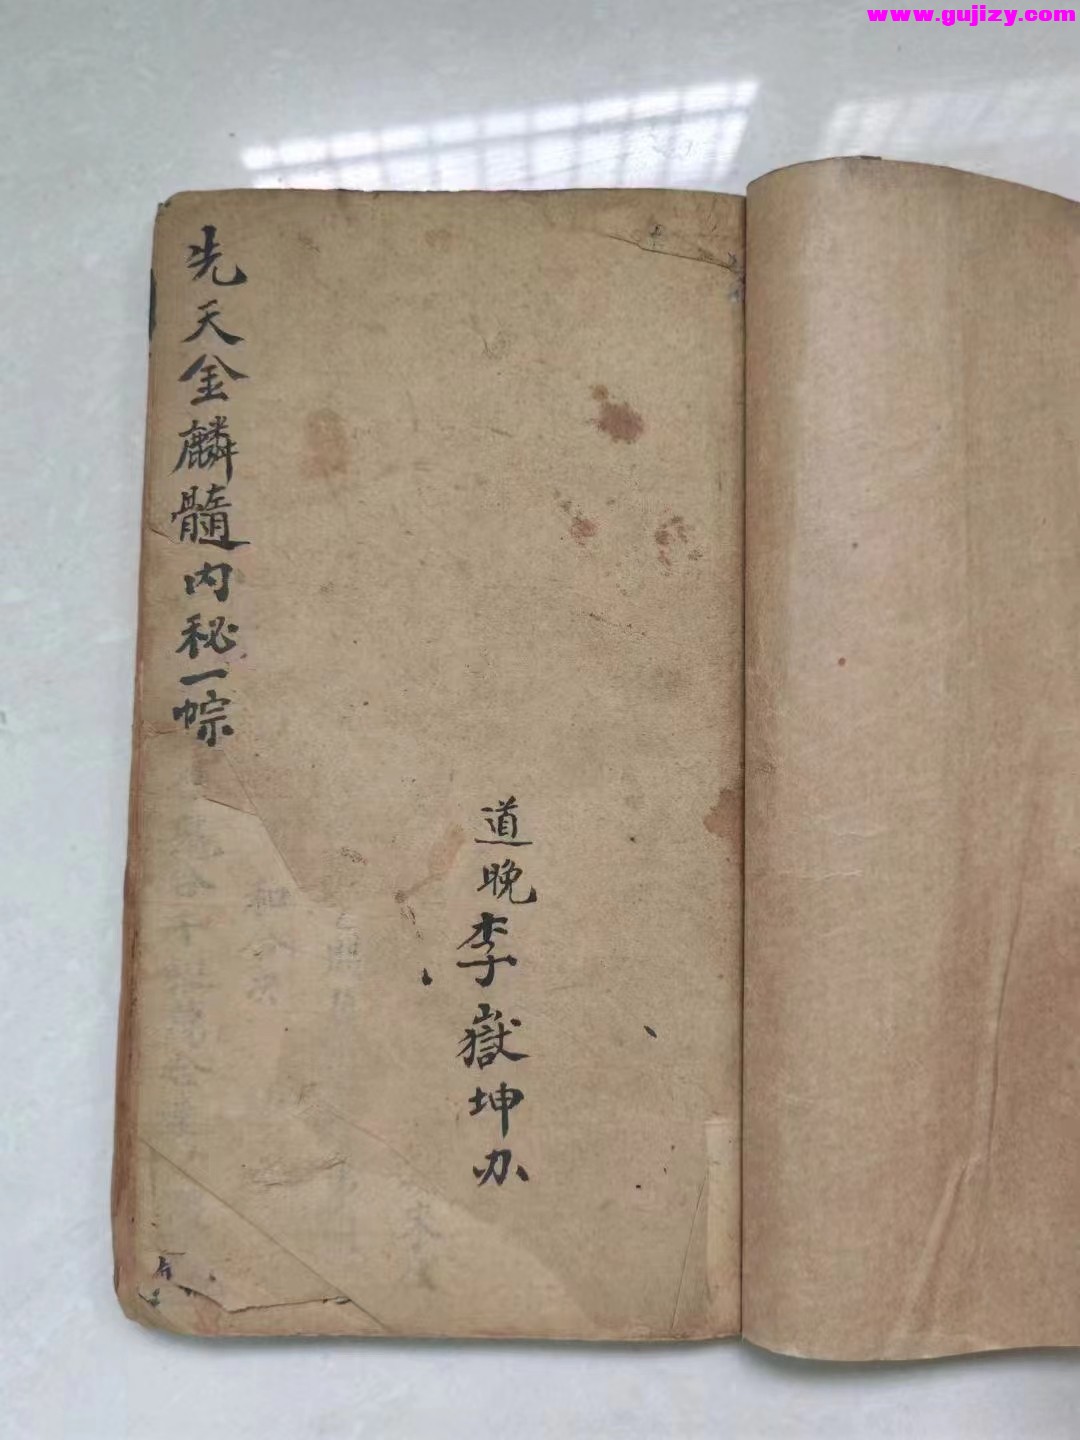 www.gujizy.com
先天金麟髓内秘一㡓
道晚李嶽坤办